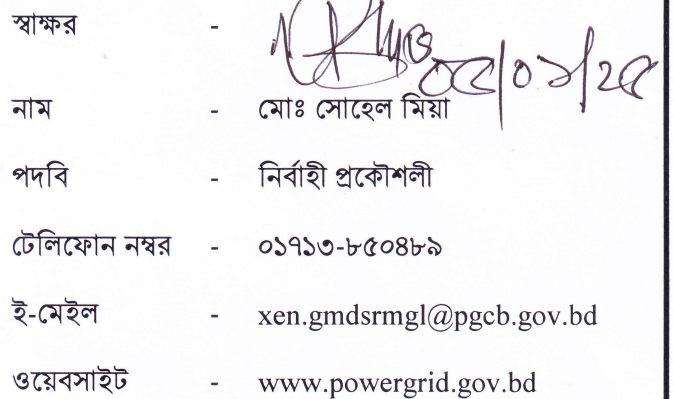 স্বাক্ষর -
নাম - মোঃ সোহেল মিয়া
পদবি - নির্বাহী প্রকৌশলী
টেলিফোন নম্বর - ০১৭১৩-৮৫০৪৮৯
ই-মেইল - xen.gmdsrmgl@pgcb.gov.bd
ওয়েবসাইট - www.powergrid.gov.bd